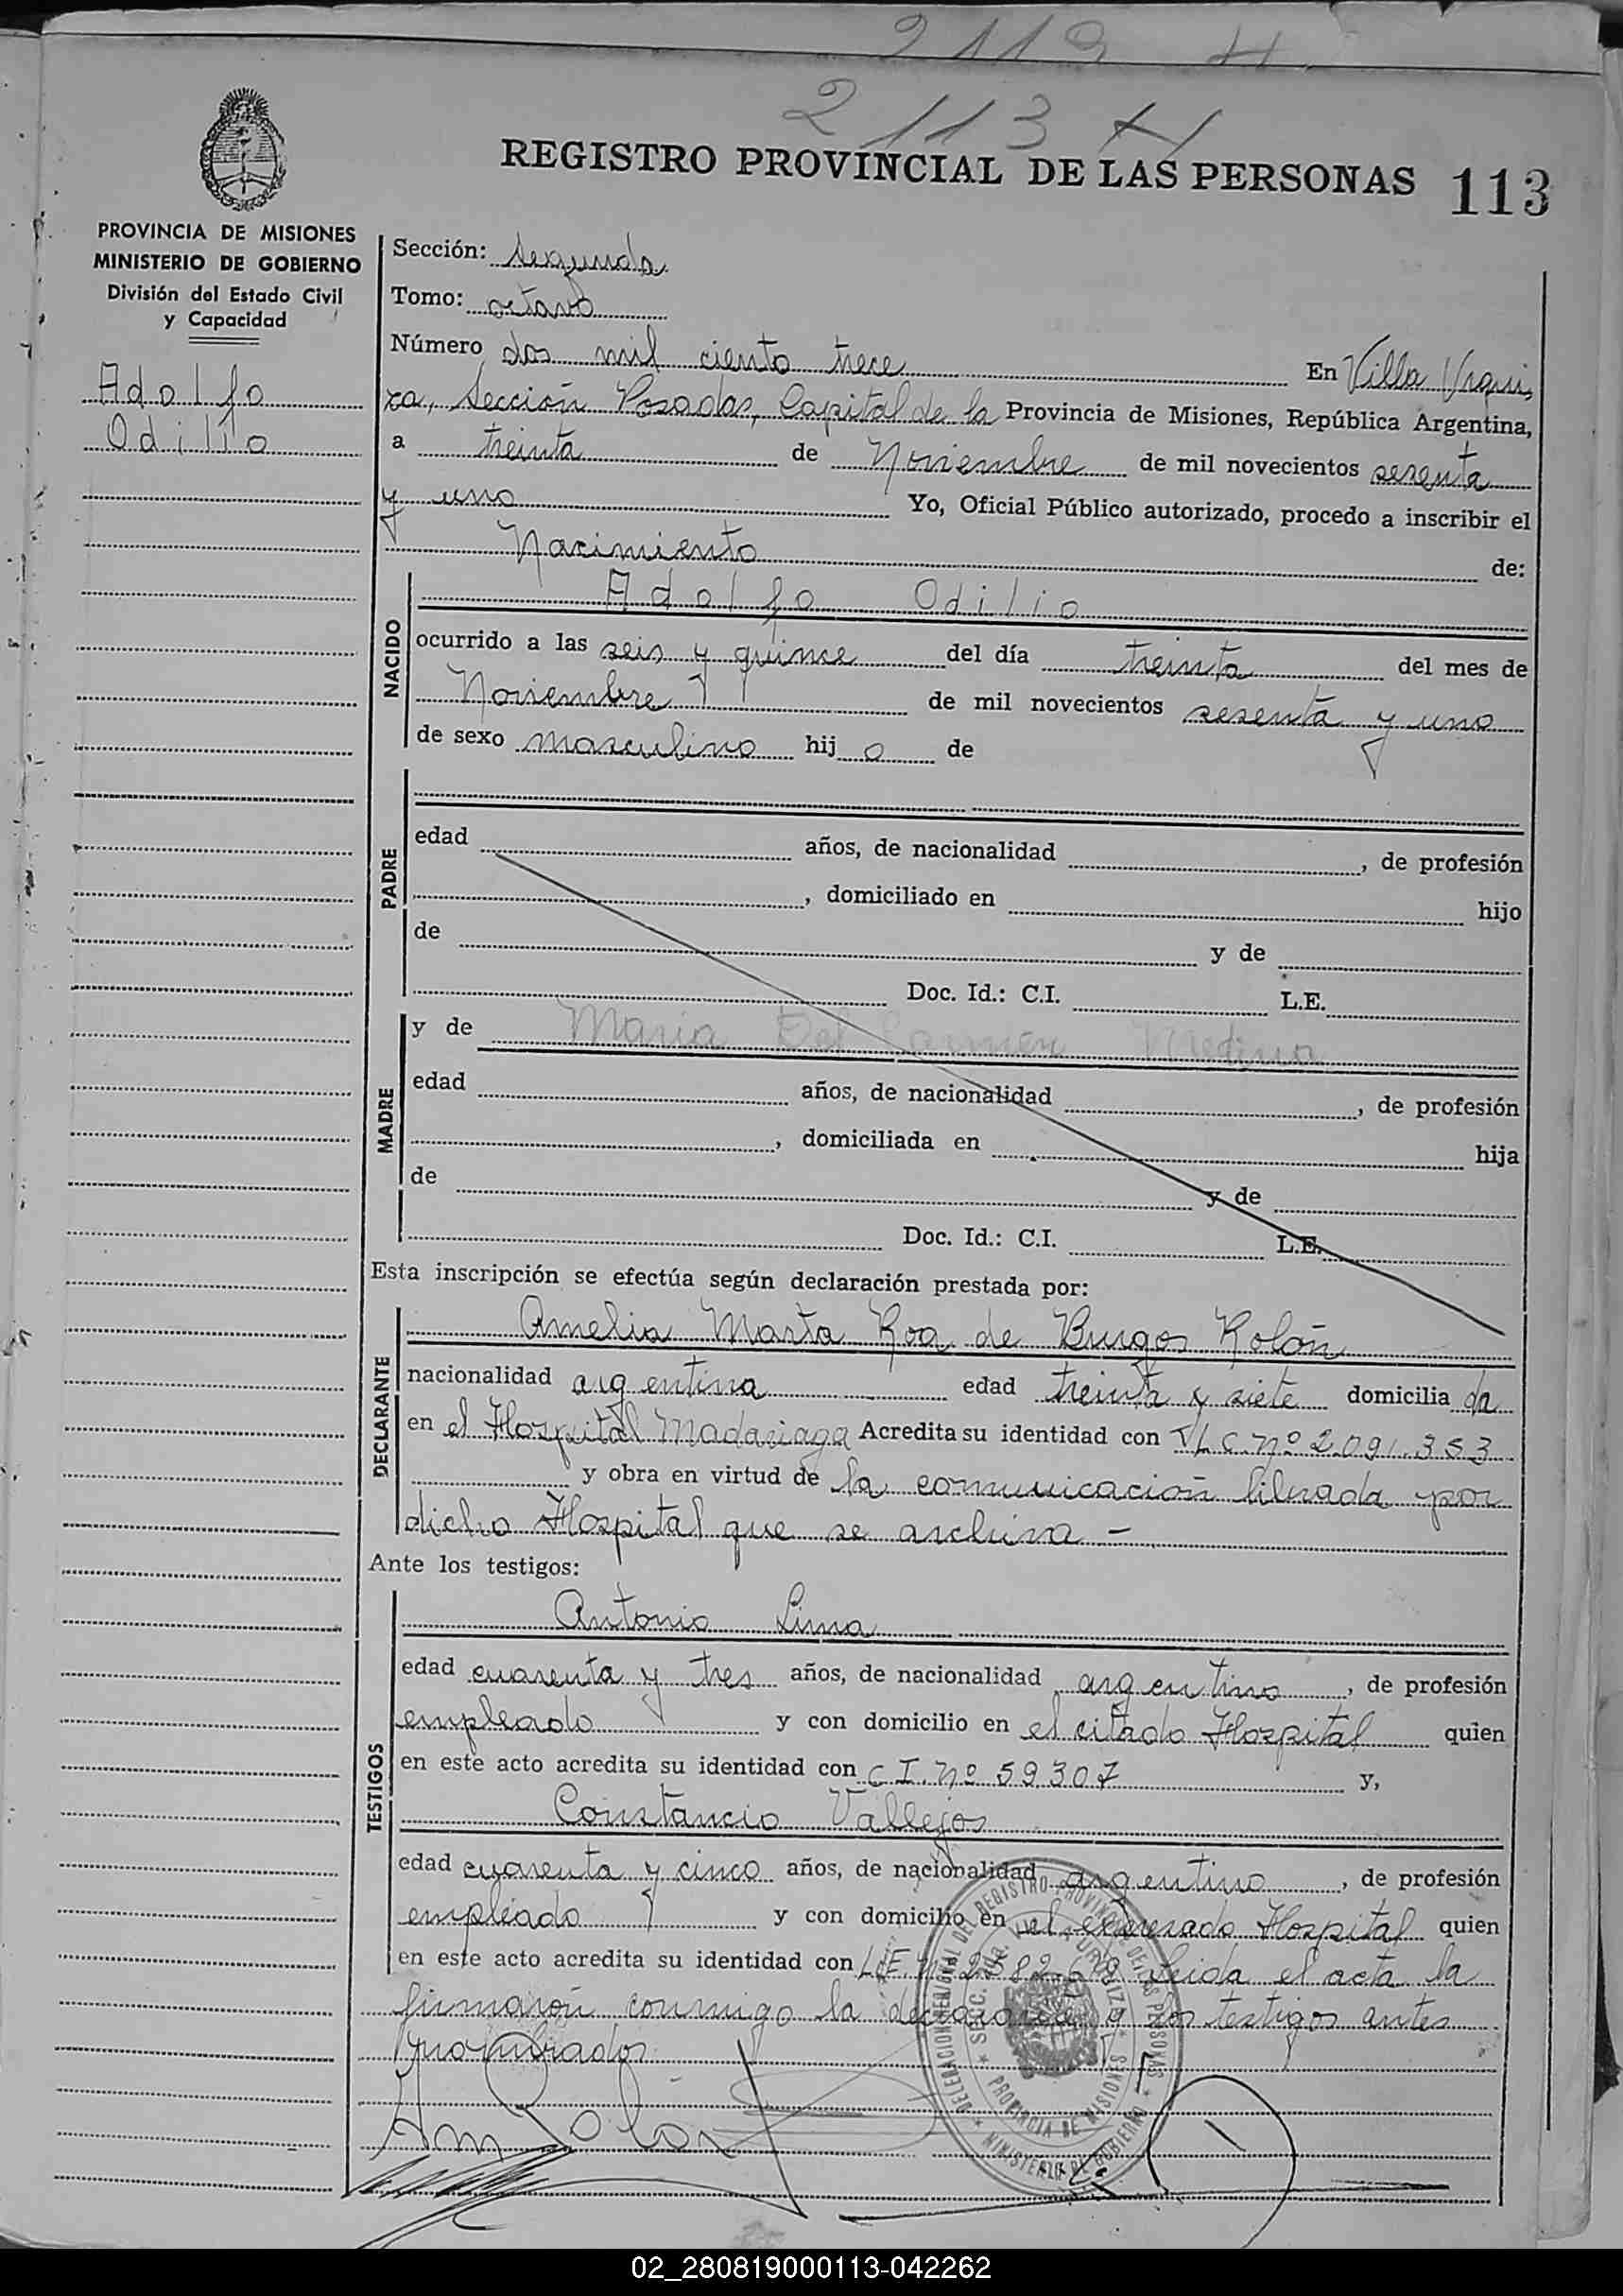 2119 H
2113 H
REGISTRO PROVINCIAL DE LAS PERSONAS 113
PROVINCIA DE MISIONES
MINISTERIO DE GOBIERNO
División del Estado Civil
y Capacidad
Adolfo
Odilio
Sección: Segunda
Tomo: octavo
Número dos mil ciento trece En Villa Urqui
za, Sección Posadas, Capital de la Provincia de Misiones, República Argentina,
a treinta de Noviembre de mil novecientos sesenta
y uno Yo, Oficial Público autorizado, procedo a inscribir el
Nacimiento de:
NACIDO
Adolfo Odilio
ocurrido a las seis y quince del día treinta del mes de
Noviembre de mil novecientos sesenta y uno
de sexo masculino hijo de
PADRE
edad años, de nacionalidad , de profesión
, domiciliado en hijo
de y de
Doc. Id.: C.I. L.E.
MADRE
y de Maria Del Carmen Medina
edad años, de nacionalidad , de profesión
, domiciliada en hija
de y de
Doc. Id.: C.I. L.E.
Esta inscripción se efectúa según declaración prestada por:
DECLARANTE
Amelia Marta Roa de Burgos Rolón
nacionalidad argentina edad treinta y siete domiciliada
en el Hospital Madariaga Acredita su identidad con L C nº 2.091.353
y obra en virtud de la comunicación librada por
dicho Hospital que se archiva -
Ante los testigos:
TESTIGOS
Antonio Lima
edad cuarenta y tres años, de nacionalidad argentino, de profesión
empleado y con domicilio en el citado Hospital quien
en este acto acredita su identidad con C I. nº 59307 y,
Constancio Vallejos
edad cuarenta y cinco años, de nacionalidad argentino, de profesión
empleado y con domicilio en el expresado Hospital quien
en este acto acredita su identidad con L.E. Leida el acta la
firmaron conmigo la declarante y los testigos antes
nombrados
Am Rolón
DELEGACION REGIONAL DEL REGISTRO PROVINCIAL DE LAS PERSONAS
MINISTERIO DE GOBIERNO
SECC. 2da. URQUIZA
PROVINCIA DE MISIONES
02_280819000113-042262